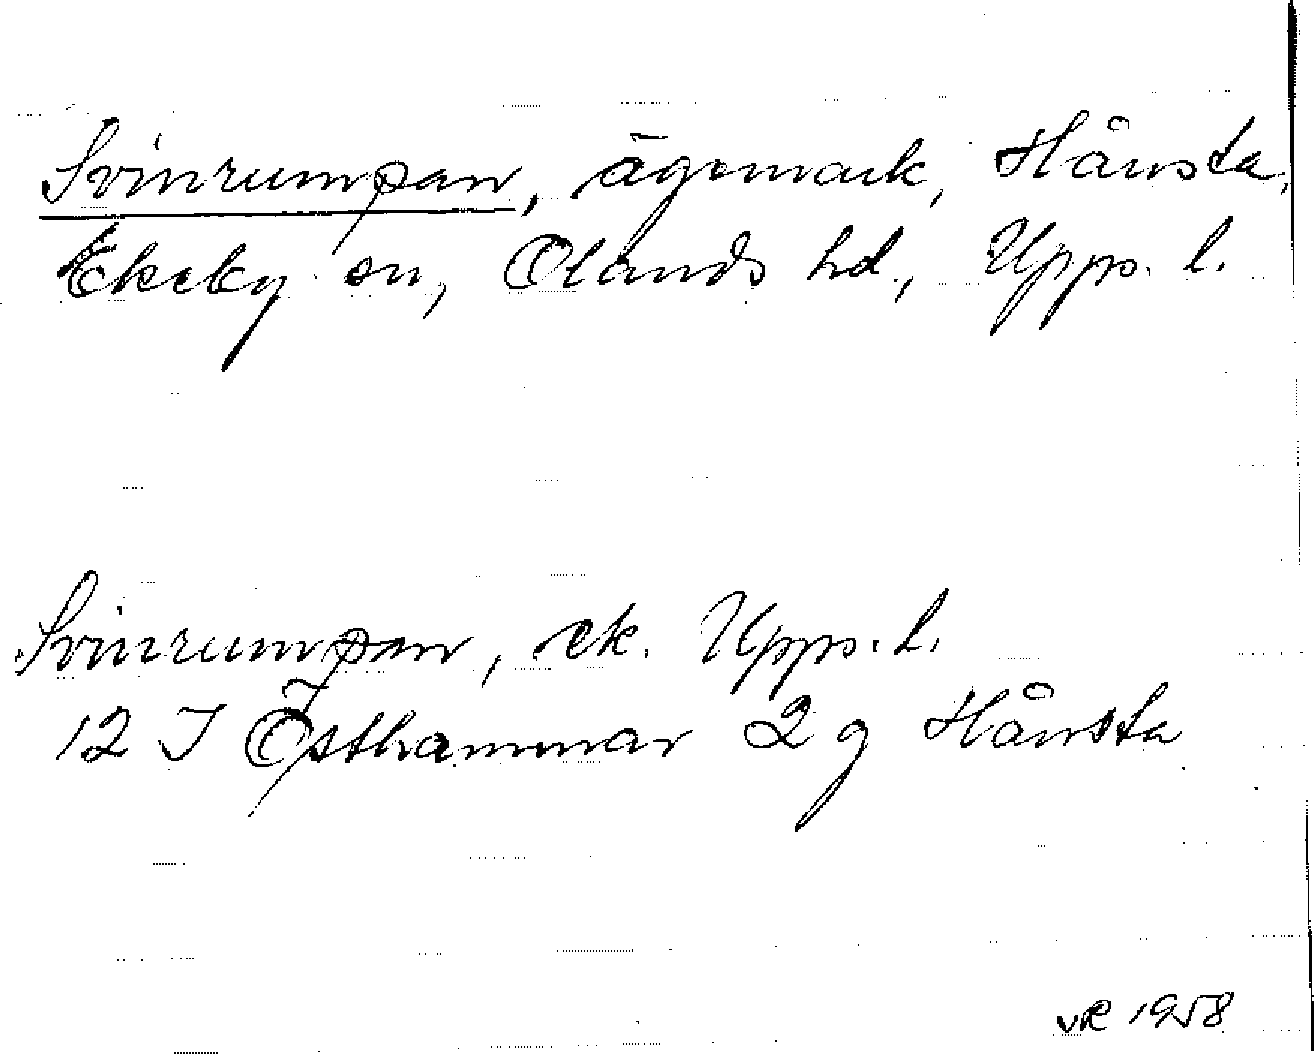 Svinrumpan, ägomark, Hånsta,
Ekeby sn, Olands hd, Upps. l.
Svinrumpan, ek. Upps. l.
12 I Östhammar 2 g Hånsta
VR 1958